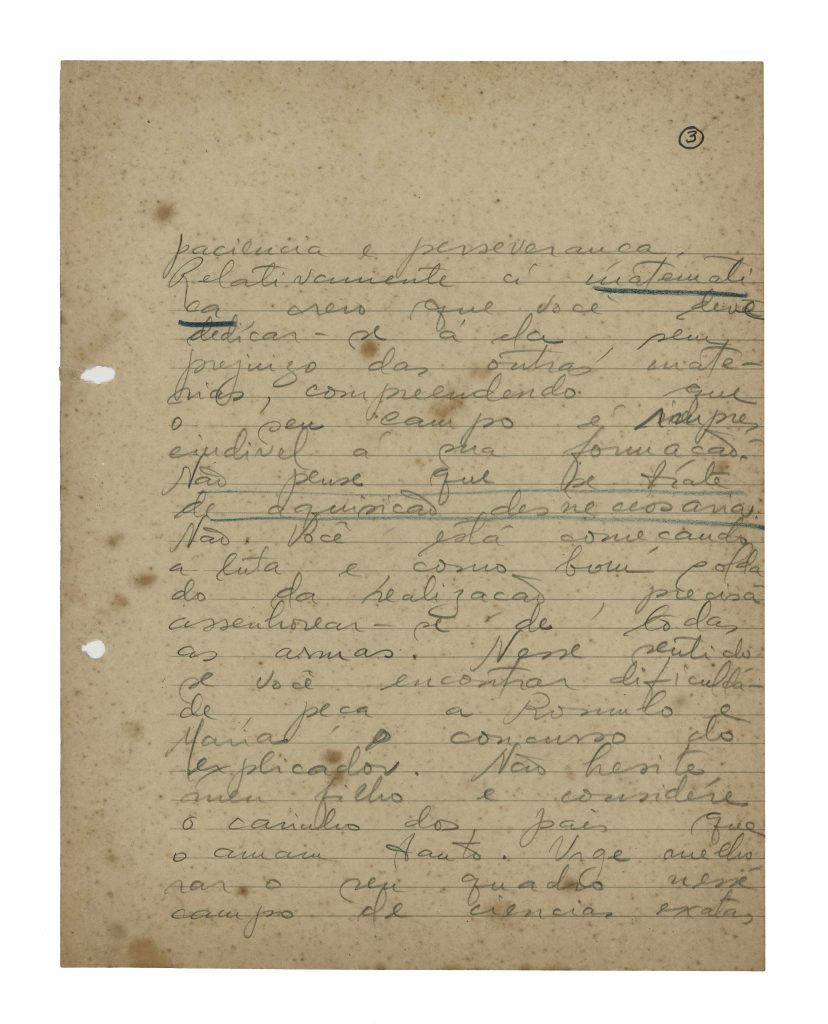 3
paciencia e perseverança.
Relativamente á matemati
ca creio que você deve
dedicar-se á ela, sem
prejuizo das outras mate-
rias, compreendendo que
o seu campo é impres
cindivel á sua formação.
Não pense que se trate
de aquisicão desnecessaria.
Não. Você está começando
a luta e como bom solda
do da realização, precisa
assenhorear-se de todas
as armas. Nesse sentido
se você encontrar dificulda-
de peça a Romulo e
Maria o concurso do
explicador. Não hesite
meu filho e considére
o carinho dos pais que
o amam tanto. Urge melho
rar o seu quadro nesse
campo de ciencias exatas,